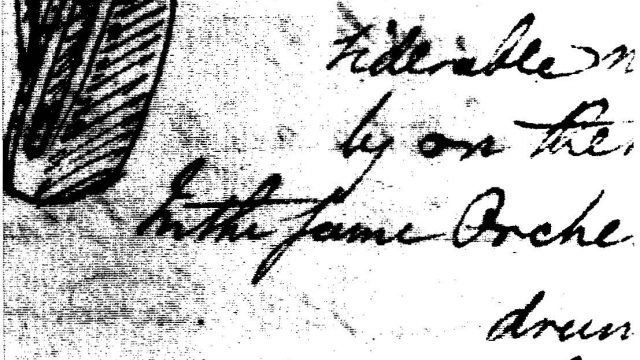 siderable n
by on the
In the same Orche
drun